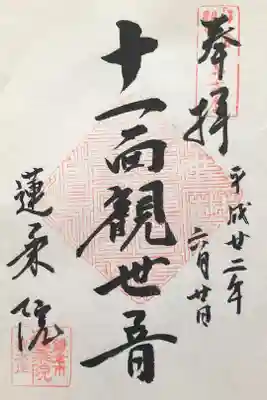 奉拝
平成廿二年
六月廿日
十一面観世音
蓮来院